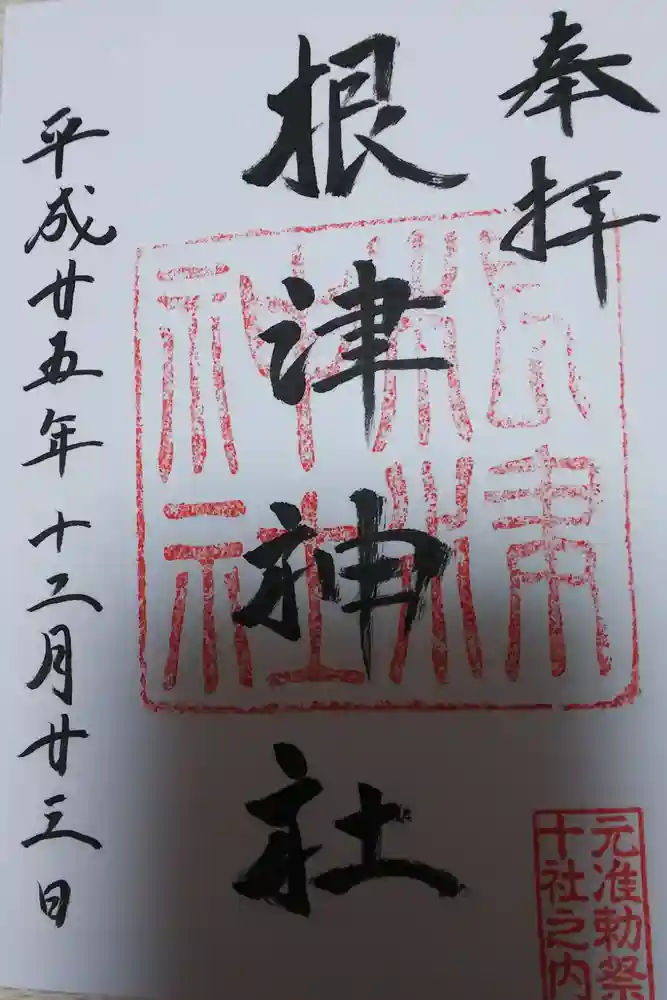 奉拝
根津神社
平成廿五年十二月廿三日
根津神社
元准勅祭
十社之内